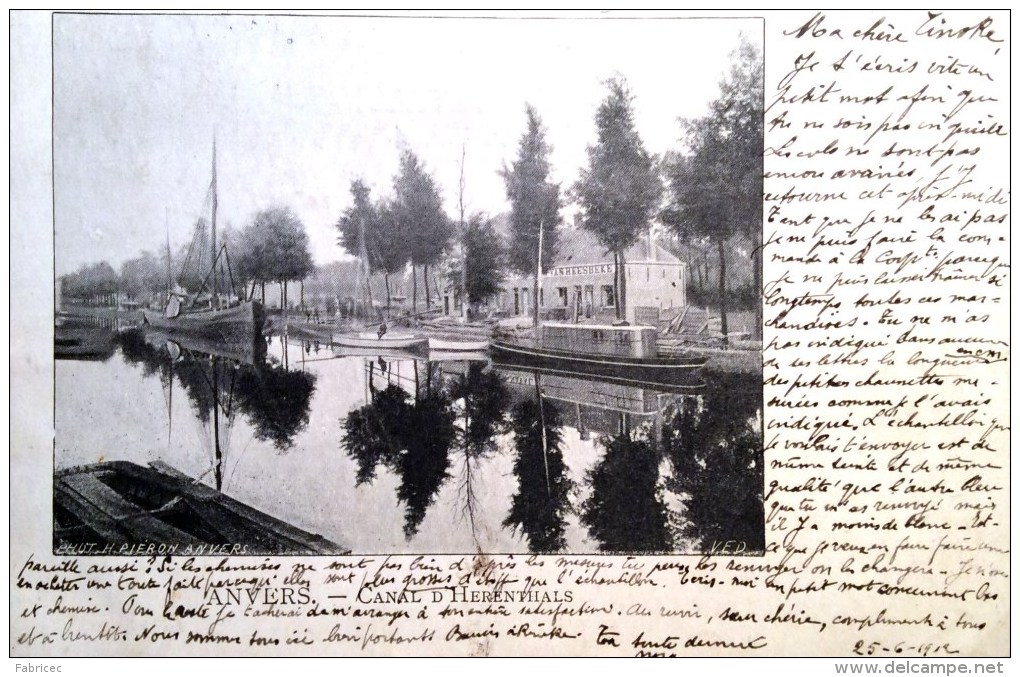 Ma chère Tinoke
Je t'écris vite un
petit mot afin que
tu ne sois pas inquiète
Les cols ne sont pas
encore avariés, j'y
retourne cet après-midi
Tant que je ne les ai pas
je ne puis faire la com-
mande à la Coopve parceque
je ne puis laisser traîner si
longtemps toutes ces mar-
chandises. Tu ne m'as
pas indiqué dans aucune
de tes lettres la longueur en cm
des petites chaussettes me-
surées comme je l'avais
indiqué. L'échantillon que
je voulais t'envoyer est de
même teinte et de même
qualité que l'autre bleu
que tu m'as renvoyé mais
il y a moins de blanc. Est-
ce que je veux en faire faire une
pareille aussi? Si les chemises ne sont pas bien d'après les mesures tu peux les renvoyer on les changera. Je n'ose
en acheter une toute faite parcequ'elles sont plus grosses d'étoff que l'échantillon. Ecris-moi un petit mot concernant bas
ANVERS. — CANAL D'HERENTHALS
et chemise. Pour le reste je tacherai de m'arranger à ton entière satisfaction. Au revoir, sœur chérie, compliments à tous
et à bientôt. Nous sommes tous ici bien portants Baisers à Rineke. Ta toute dévouée
25-6-1912
VAN HEESBEKE
PHOT. H. PIERON ANVERS
V.E.D.
Fabricec
delcampe.net